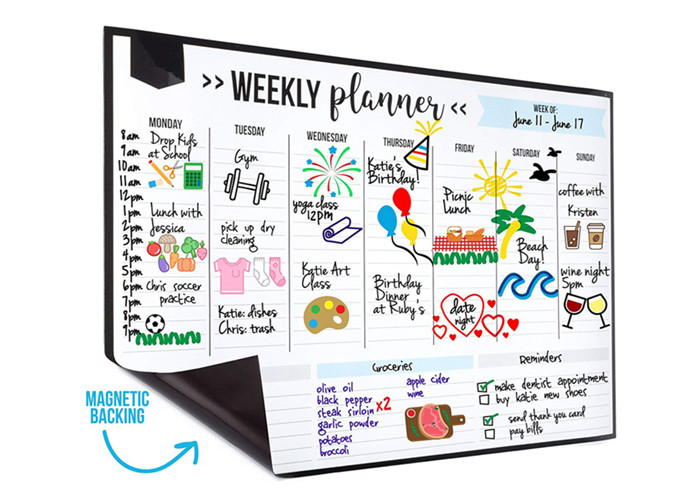 >> WEEKLY planner <<
WEEK OF:
June 11 - June 17
MONDAY
TUESDAY
WEDNESDAY
THURSDAY
FRIDAY
SATURDAY
SUNDAY
8am
9am
10am
11am
12pm
1pm
2pm
3pm
4pm
5pm
6pm
7pm
8pm
9pm
Drop Kids
at School
Lunch with
Jessica
Chris soccer
practice
Gym
pick up dry
cleaning
Katie: dishes
Chris: trash
yoga class
12PM
Katie Art
Class
Katie's
Birthday!
Birthday
Dinner
at Ruby's
Picnic
Lunch
date
night
Beach
Day!
coffee with
Kristen
wine night
5pm
Groceries
olive oil
black pepper
steak sirloin x2
garlic powder
potatoes
broccoli
apple cider
wine
Reminders
make dentist appointment
buy katie new shoes
send thank you card
pay bills
MAGNETIC
BACKING